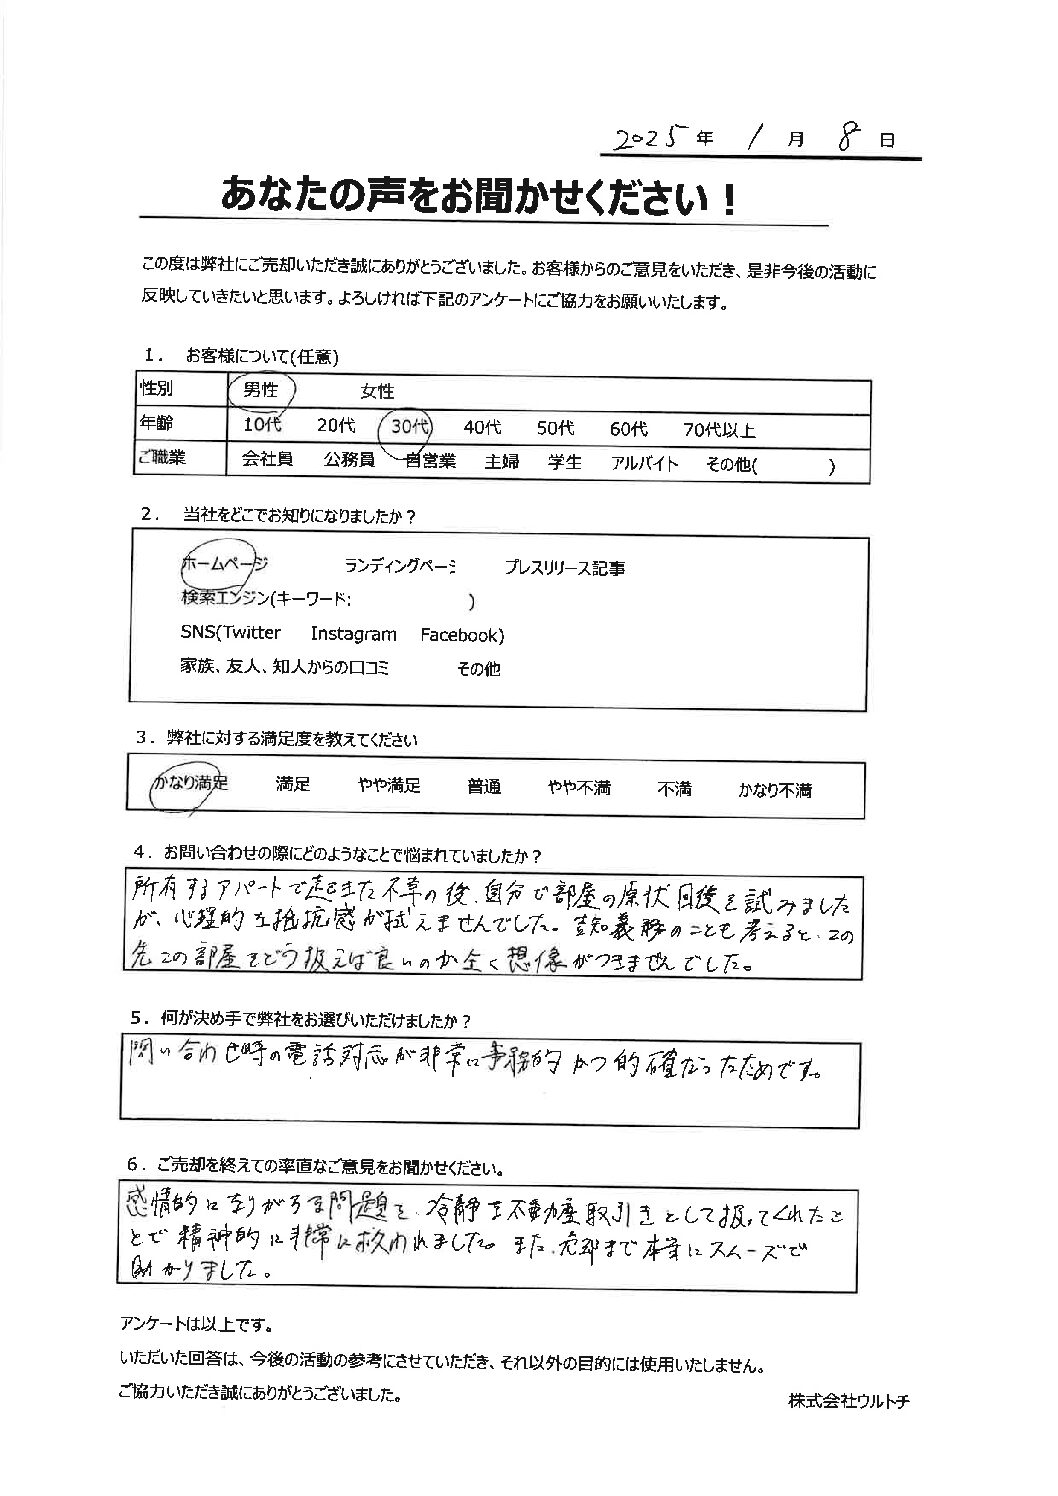 2025年 1月 8日
あなたの声をお聞かせください！
この度は弊社にご売却いただき誠にありがとうございました。お客様からのご意見をいただき、是非今後の活動に
反映していきたいと思います。よろしければ下記のアンケートにご協力をお願いいたします。
1． お客様について(任意)
性別 男性 女性
年齢 10代 20代 30代 40代 50代 60代 70代以上
ご職業 会社員 公務員 自営業 主婦 学生 アルバイト その他( )
2． 当社をどこでお知りになりましたか？
ホームページ ランディングページ プレスリリース記事
検索エンジン(キーワード: )
SNS(Twitter Instagram Facebook)
家族、友人、知人からの口コミ その他
3．弊社に対する満足度を教えてください
かなり満足 満足 やや満足 普通 やや不満 不満 かなり不満
4．お問い合わせの際にどのようなことで悩まれていましたか？
所有するアパートで起きた不幸の後、自分で部屋の原状回復を試みました
が、心理的な抵抗感が拭えませんでした。告知義務のことも考えると、この
先この部屋をどう扱えば良いのか全く想像がつきませんでした。
5．何が決め手で弊社をお選びいただけましたか？
問い合わせ時の電話対応が非常に事務的かつ的確だったためです。
6．ご売却を終えての率直なご意見をお聞かせください。
感情的になりがちな問題を、冷静な不動産取引きとして扱ってくれたこ
とで精神的に非常に救われました。また、売却まで本当にスムーズで
助かりました。
アンケートは以上です。
いただいた回答は、今後の活動の参考にさせていただき、それ以外の目的には使用いたしません。
ご協力いただき誠にありがとうございました。
株式会社ウルトチ